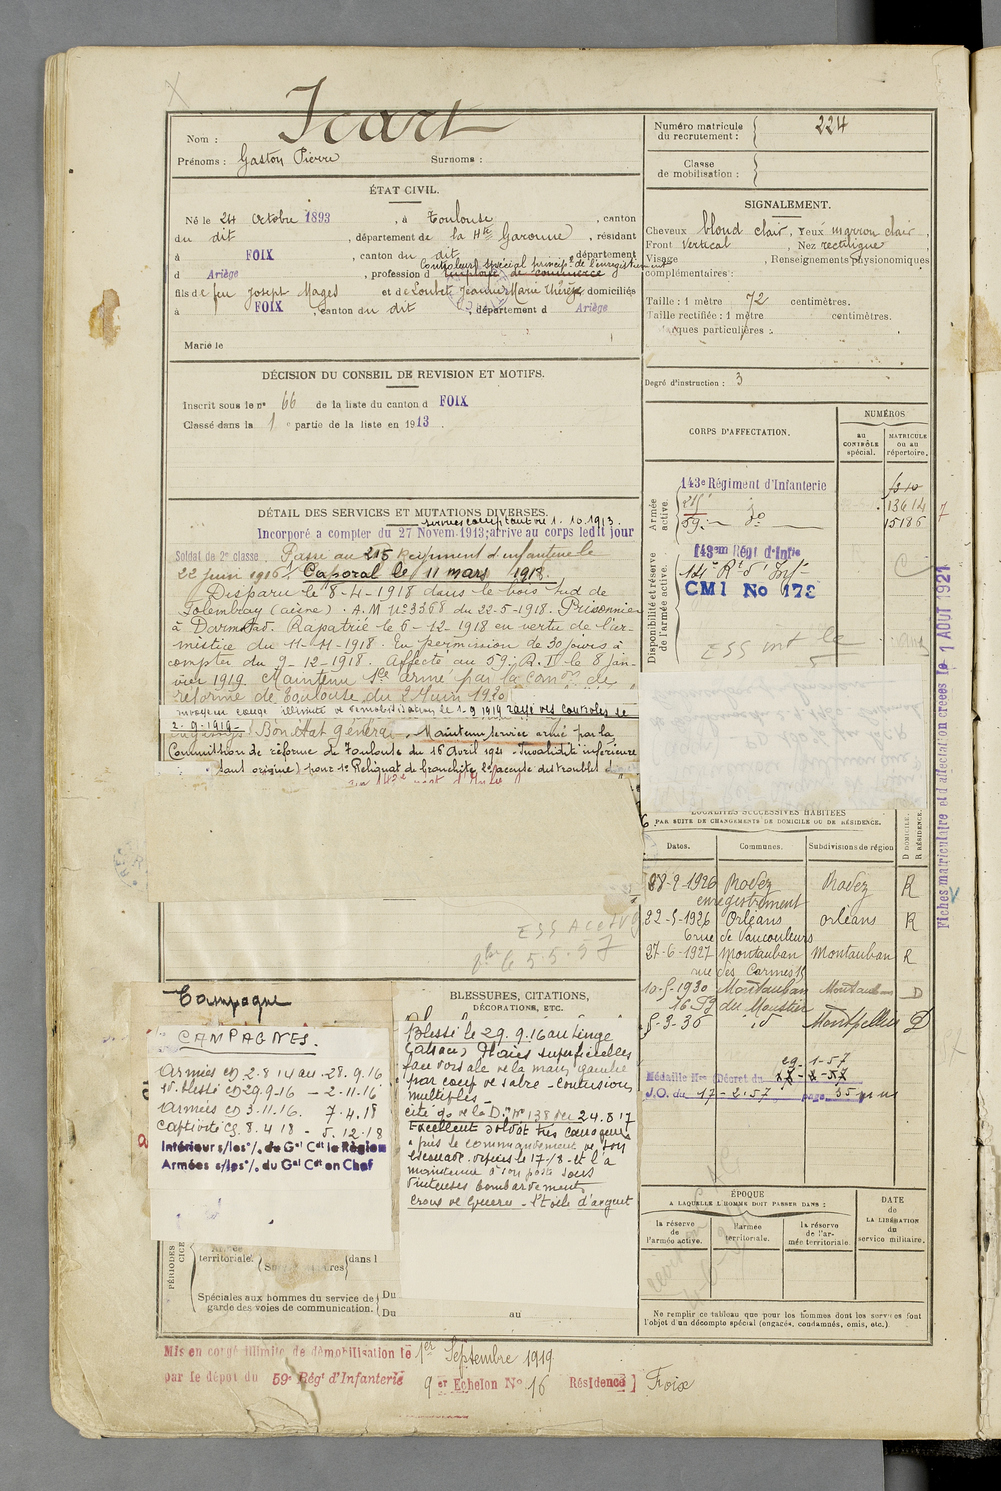 Nom : Icart
Prénoms : Gaston Pierre Surnoms :
Numéro matricule du recrutement : 224
Classe de mobilisation :
ÉTAT CIVIL.
Né le 24 Octobre 1893, à Toulouse, canton
du dit, département de la Hte Garonne, résidant
à FOIX, canton du dit, département
Controleur spécial princip. de l'enregistrement
d Ariège, profession d employé de commerce
fils de feu Joseph Mages et de Loubet Jeanne Marie Thérèse domiciliés
à FOIX, canton du dit, département d Ariège
Marié le
SIGNALEMENT.
Cheveux blond clair, Yeux marron clair,
Front Vertical, Nez rectiligne
Visage, Renseignements physionomiques
complémentaires :
Taille : 1 mètre 72 centimètres.
Taille rectifiée : 1 mètre centimètres.
Marques particulières :
Degré d'instruction : 3
DÉCISION DU CONSEIL DE REVISION ET MOTIFS.
Inscrit sous le n° 66 de la liste du canton d FOIX
Classé dans la 1e partie de la liste en 1913.
CORPS D'AFFECTATION.
NUMÉROS
au CONTRÔLE spécial.
MATRICULE ou au répertoire.
Armée active.
143e Régiment d'Infanterie
215
59
13614
15186
Disponibilité et réserve de l'armée active.
143em Régt d'Infie
14e Rt d'Inf
CM1 No 173
DÉTAIL DES SERVICES ET MUTATIONS DIVERSES.
services comptant du 1.10.1913.
Incorporé à compter du 27 Novem. 1913; arrivé au corps ledit jour
Soldat de 2e classe. Passé au 215 Régiment d'infanterie le
22 juin 1916. Caporal le 11 mars 1918.
Disparu le 8-4-1918 dans le bois sud de
Folembray (aisne). A.M n°3368 du 22-5-1918. Prisonnier
à Darmstad. Rapatrié le 6-12-1918 en vertu de l'ar-
mistice du 11-11-1918 En permission de 30 jours à
compter du 9-12-1918. Affecté au 59e R.I. le 8 Jan-
vier 1919. Maintenu sce armé par la Comon de
réforme de Toulouse du 2 Juin 1920
envoyé en congé illimité de démobilisation le 1-9 1919 rayé des controles le
2-9-1919. Bon état général. Maintenu service armé par la
Commission de réforme de Toulouse du 16 Avril 1921. Invalidité inférieure
1e Reliquat de bronchite 2e accuse des troubles
LOCALITÉS SUCCESSIVES HABITÉES
PAR SUITE DE CHANGEMENTS DE DOMICILE OU DE RÉSIDENCE.
Dates. Communes. Subdivisions de région D DOMICILE. R RÉSIDENCE.
28-2-1926 Rodez Rodez R
enregistrement
22-5-1926 Orléans Orléans R
6 rue de Vaucouleurs
27-6-1927 Montauban Montauban R
rue des Carmes 15
10-5-1930 Montauban Montauban D
16 Bg du Moustier
5-3-36 id Montpellier D
Médaille Mre Décret du 1-57
J.O. du 17-2-57 page
Fiches matriculaire et d'affectation créées le 1 AOUT 1921
Campagne
CAMPAGNES.
Armées CD 2.8 14 au 28.9.16
Int. blessé CD 29.9-16 — 2.11.16
Armées CD 3.11.16. 7.4.18
Captivité CS. 8.4.18 - 5.12.18
Intérieur s/les o/. du Gal Cdt la Région
Armées s/les o/. du Gal Cdt en Chef
BLESSURES, CITATIONS,
DÉCORATIONS, ETC.
Blessé le 29.9.16 au Linge
(alsace) Plaies superficielles
face dorsale de la main gauche
par coup de sabre - Contusions
multiples -
cité o/ de la D. N° 138 du 24.8 17
Excellent soldat très courageux
a pris le commandement de son
escouade depuis le 17-8- et l'a
maintenue à son poste sous
d'intenses bombardements
Croix de Guerre - Etoile d'argent
territoriale. dans l
Spéciales aux hommes du service de garde des voies de communication. Du
Du au
ÉPOQUE
A LAQUELLE L'HOMME DOIT PASSER DANS :
la réserve de l'armée active. l'armée territoriale. la réserve de l'armée territoriale.
DATE de LA LIBÉRATION du service militaire.
Ne remplir ce tableau que pour les hommes dont les services font
l'objet d'un décompte spécial (engagés, condamnés, omis, etc.).
Mis en congé illimité de démobilisation le 1er Septembre 1919
par le dépôt du 59e Régt d'Infanterie 9 Echelon No 16 Résidence Foix